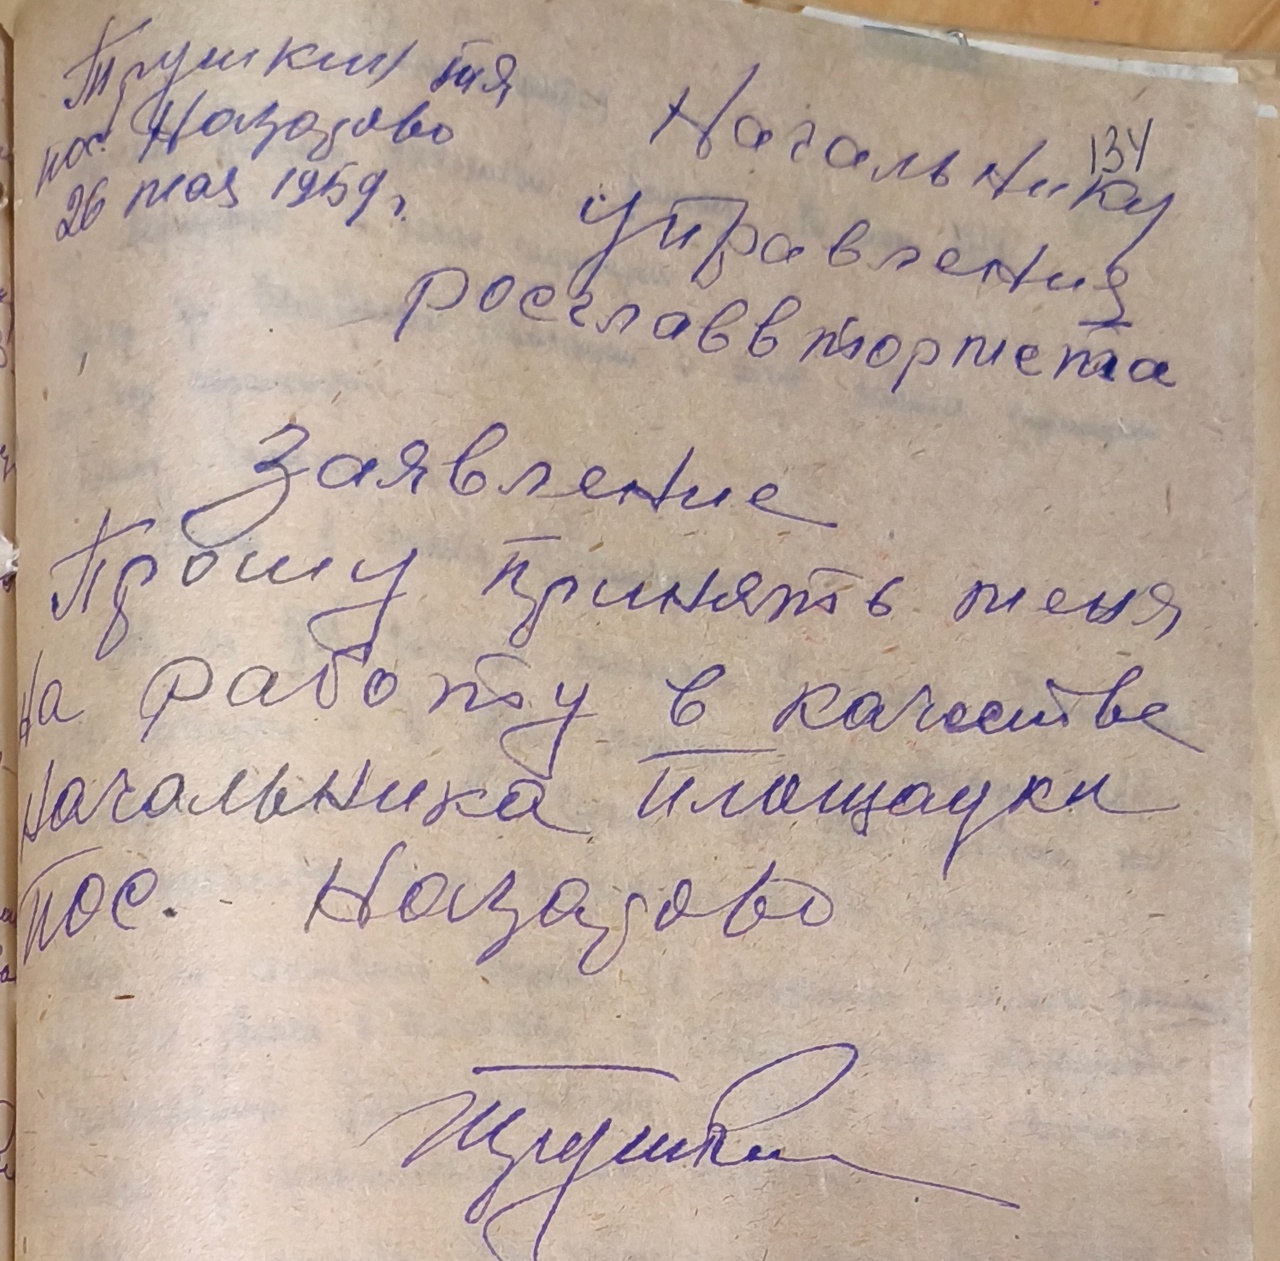 Трушкин
пос. Назадово
26 мая 1959 г.
134
Начальнику
управления
росглаввтормета
Заявление
Прошу принять меня
на работу в качестве
начальника площадки
пос. Назадово
Трушкин